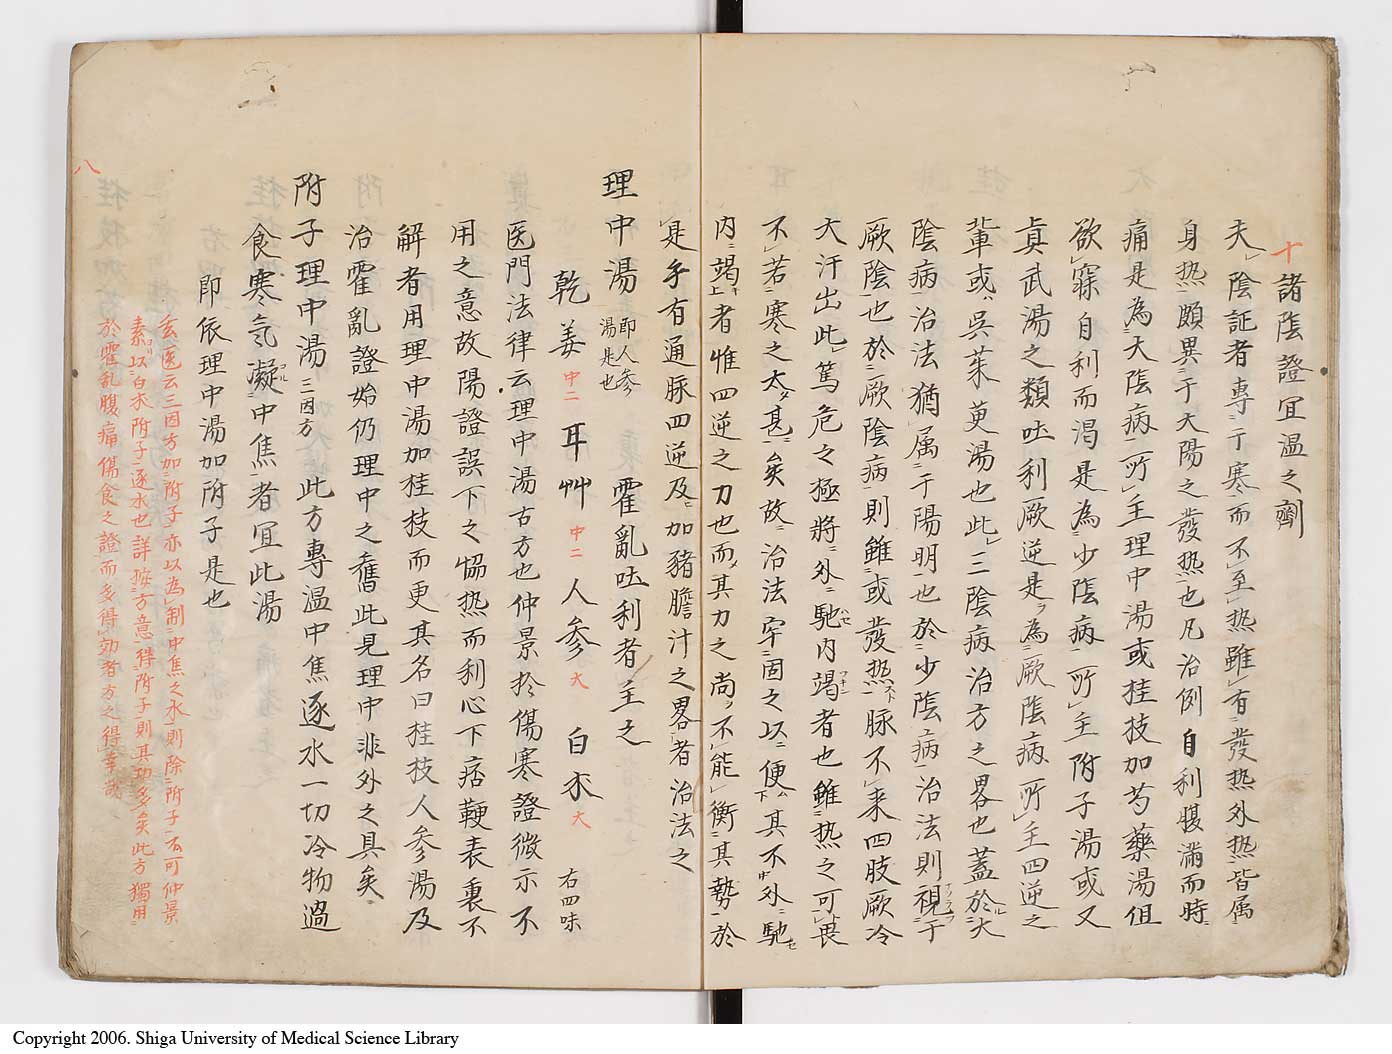 十諸陰證冝温之劑
夫陰証者專于寒而不至熱雖有發热外热皆属
身热頗異于大陽之發热也凡治例自利腹滿而時
痛是為大陰病所主理中湯或桂枝加芍藥湯但
欲寐自利而渴是為少陰病所主附子湯或又
真武湯之類吐利厥逆是為厥陰病所主四逆之
輩或呉茱萸湯也此三陰病治方之畧也蓋於大
陰病治法猶属于陽明也於少陰病治法則視于
厥陰也於厥陰病則雖或發热脉不来四肢厥冷
大汗出此篤危之極將外馳内竭者也雖热之可畏
不若寒之太甚矣故治法牢固之以便其不外馳
内竭者惟四逆之力也而其力之尚不能衡其勢於
是乎有通脉四逆及加豬膽汁之畧者治法之
理中湯 即人參湯是也 霍亂吐利者主之
乾姜 中二 耳艸 中二 人參 大 白朮 大 右四味
医門法律云理中湯古方也仲景於傷寒證微示不
用之意故陽證誤下之恊热而利心下痞鞕表裏不
解者用理中湯加桂枝而更其名曰桂枝人參湯及
治霍亂證始仍理中之舊此見理中非外之具矣
附子理中湯 三因方 此方專温中焦逐水一切冷物過
食寒氣凝中焦者冝此湯
即依理中湯加附子是也
玄医云三因方加附子亦以為制中焦之水則除附子不可仲景
素以白朮附子逐水也詳按方意得附子則其功多矣此方獨用
於霍乱腹痛傷食之證而多得効者方之得幸哉
八
Copyright 2006. Shiga University of Medical Science Library